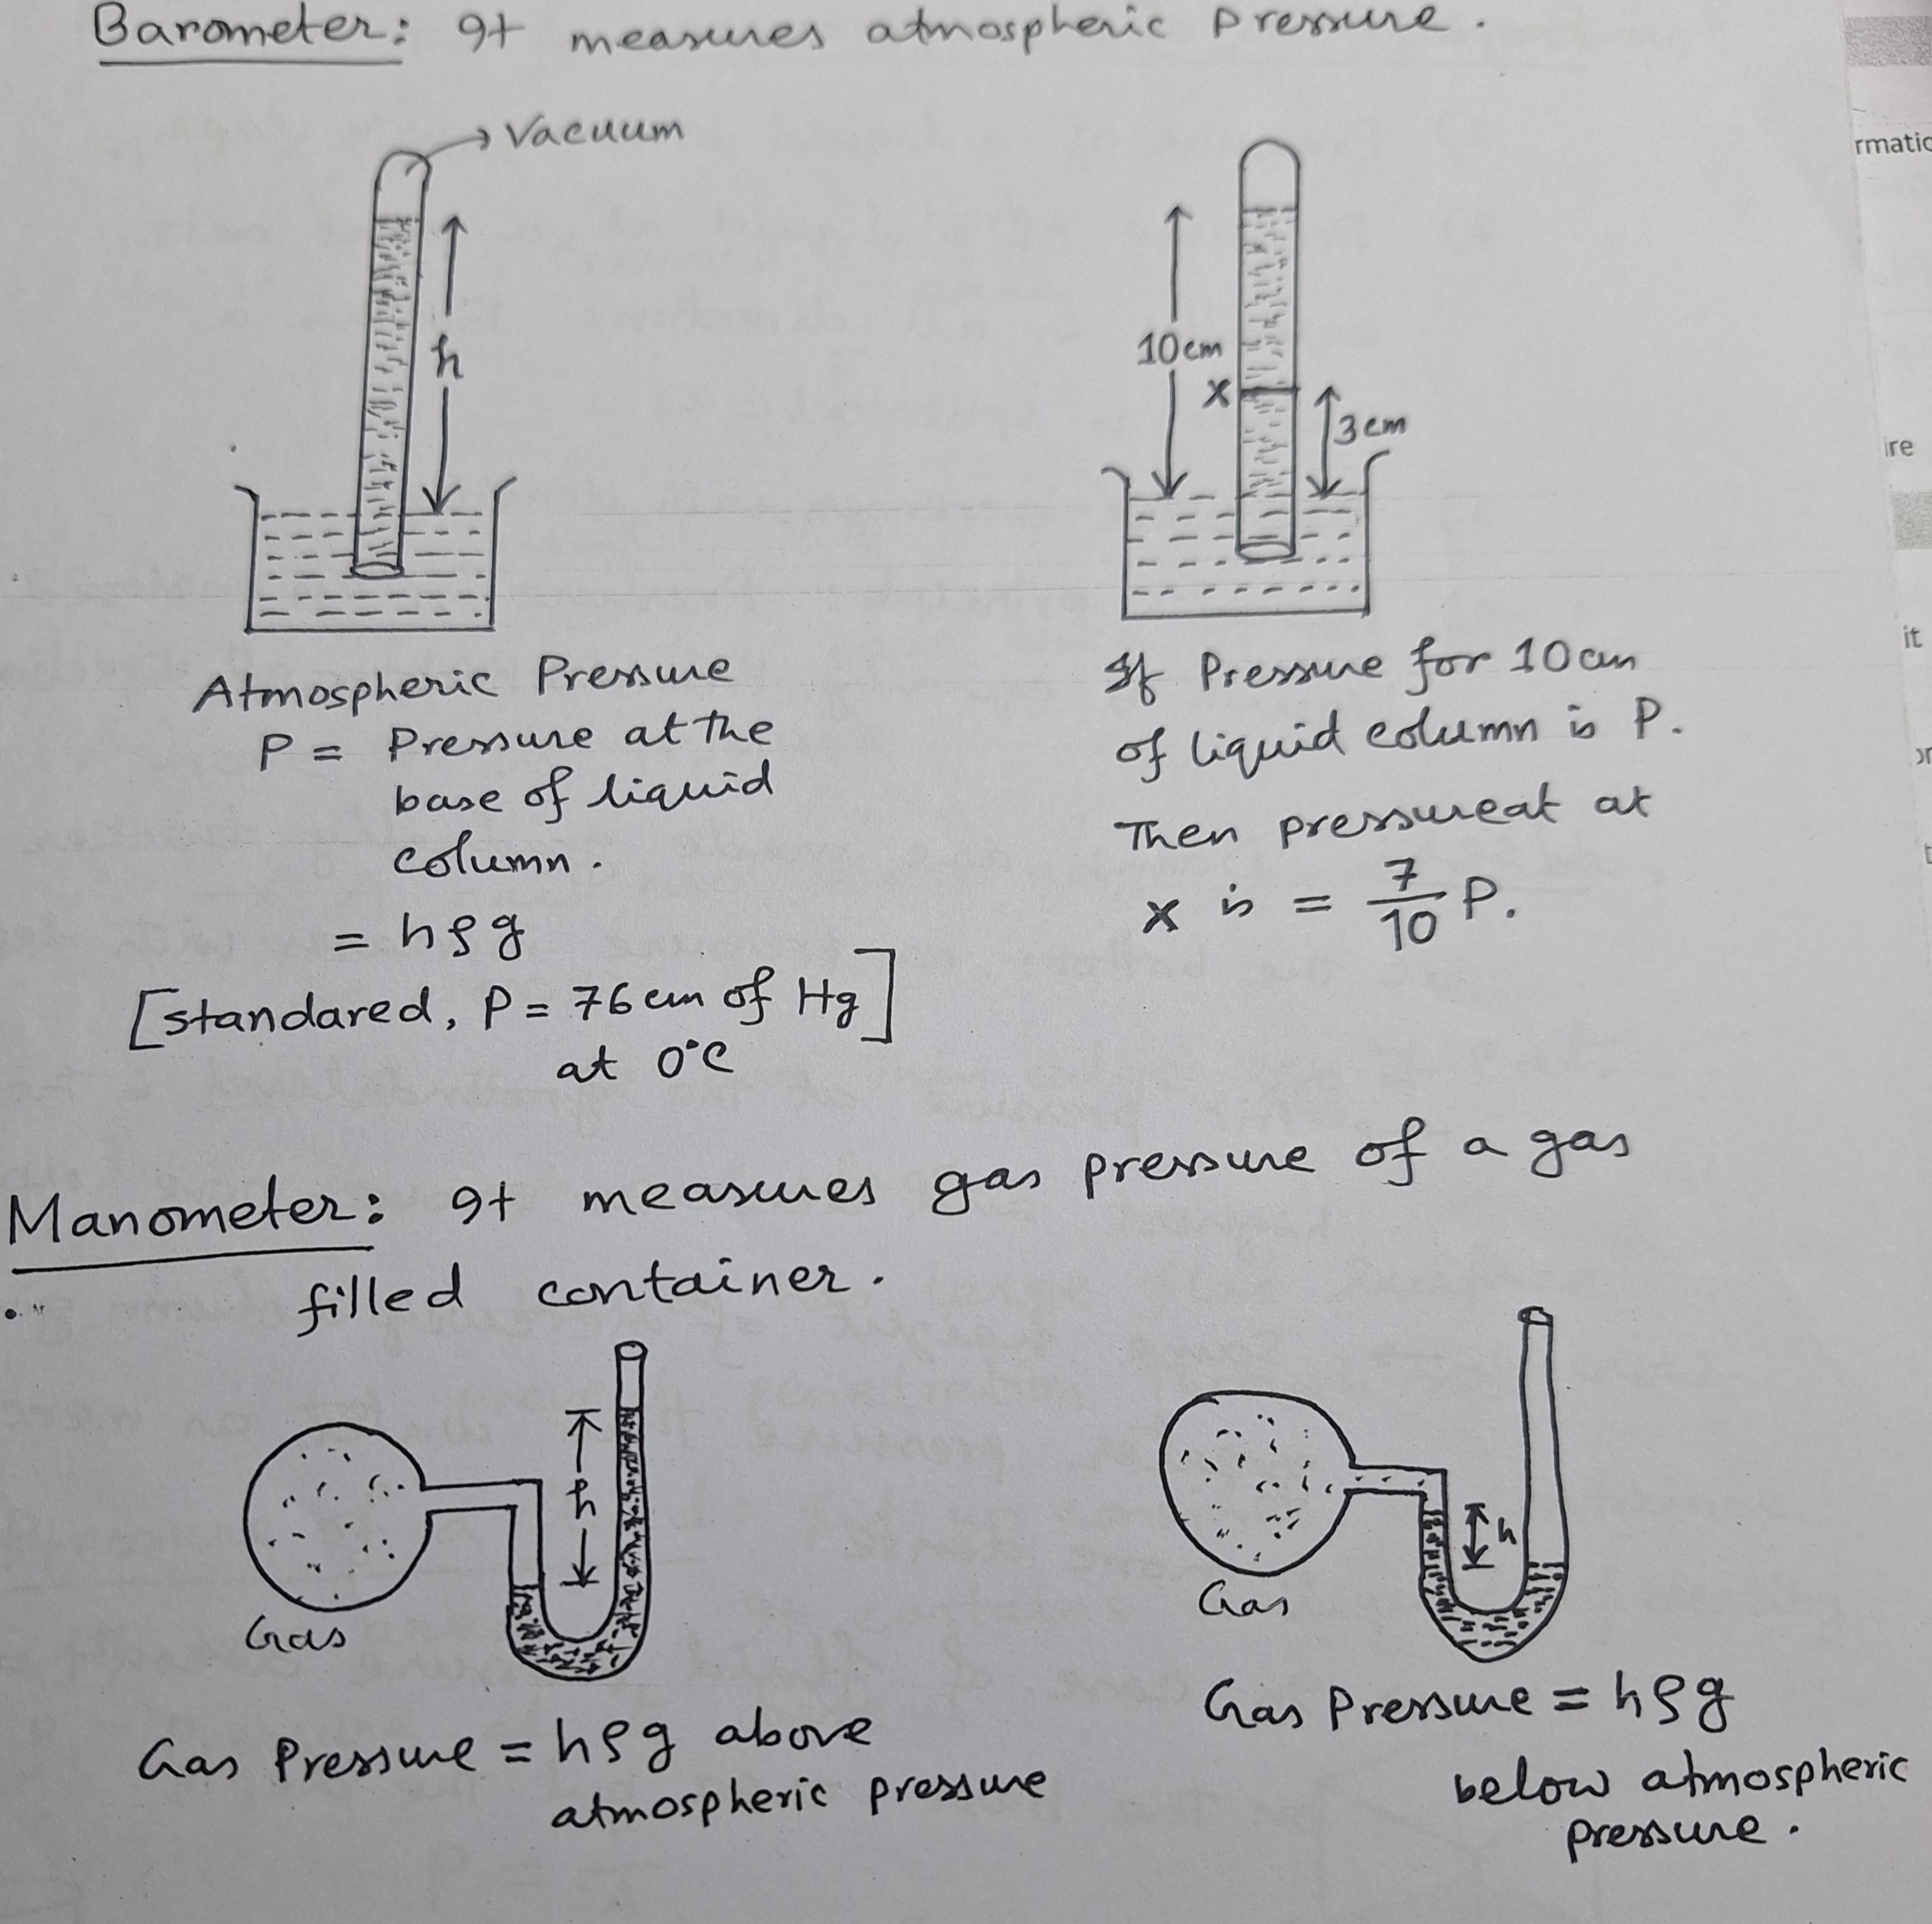 Barometer: It measures atmospheric pressure.
Vacuum
h
10cm
x
3cm
Atmospheric Pressure
P = Pressure at the
base of liquid
column.
= hρg
[standared, P = 76 cm of Hg]
at 0°C
If Pressure for 10 cm
of liquid column is P.
Then pressureat at
x is = 7/10 P.
Manometer: It measures gas pressure of a gas
filled container.
h
Gas
Gas Pressure = hρg above
atmospheric pressure
h
Gas
Gas Pressure = hρg
below atmospheric
pressure.
rmatic
ire
it